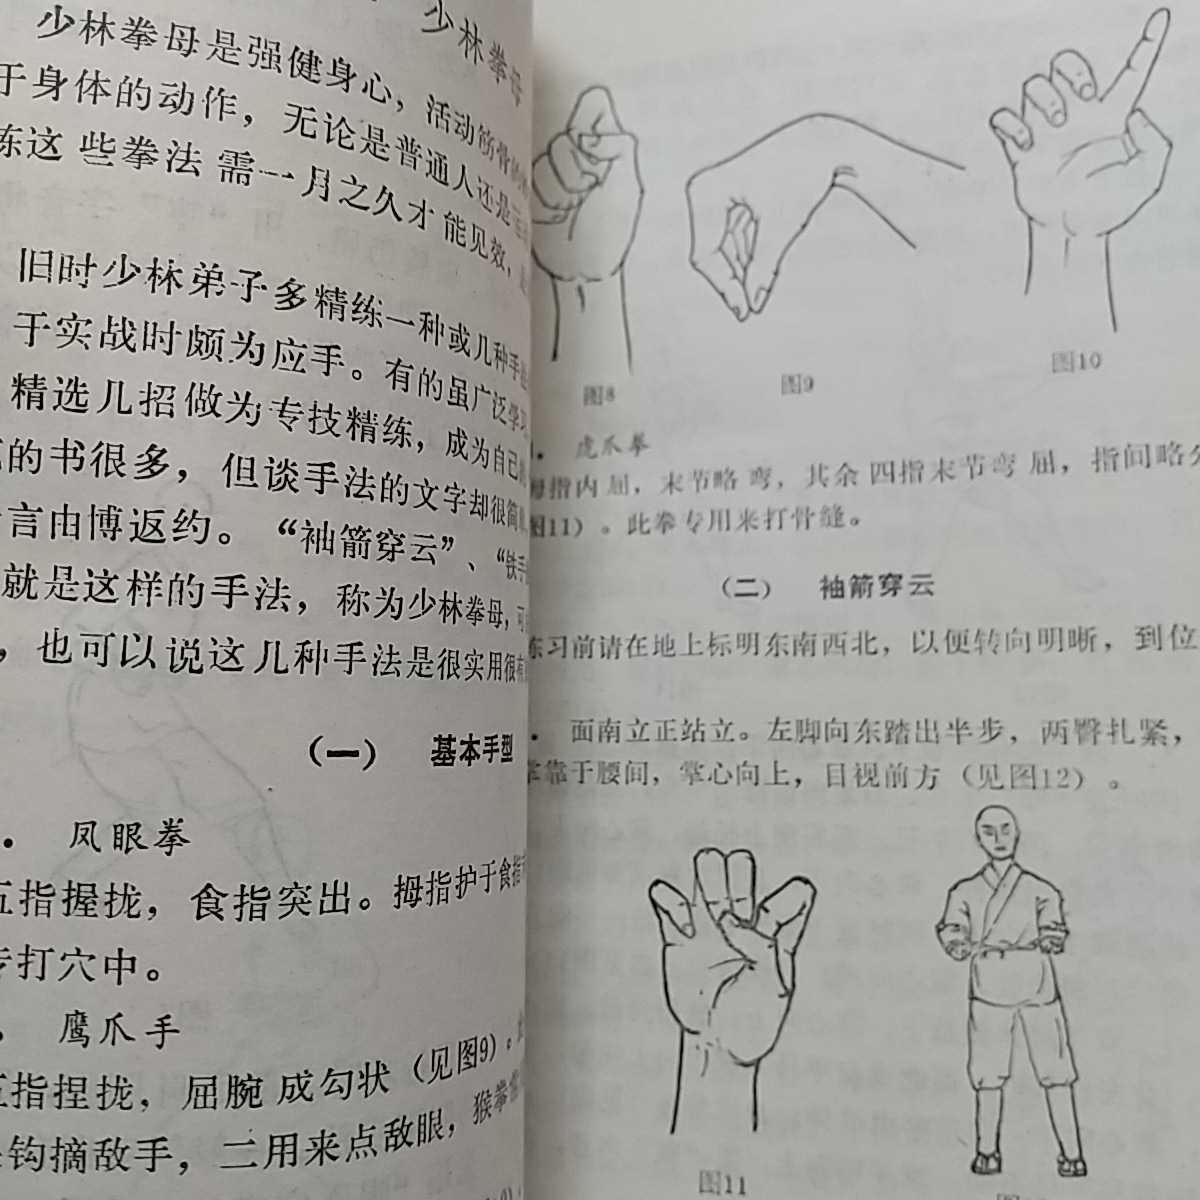 少林拳母
少林拳母是强健身心，活动筋骨的
于身体的动作，无论是普通人还是
练这些拳法需一月之久才能见效，
旧时少林弟子多精练一种或几种手法
于实战时颇为应手。有的虽广泛学习
精选几招做为专技精练，成为自己
的书很多，但谈手法的文字却很简
言由博返约。“袖箭穿云”、“铁手
就是这样的手法，称为少林拳母，可
，也可以说这几种手法是很实用很有
（一） 基本手型
． 凤眼拳
五指握拢，食指突出。拇指护于食指
专打穴中。
． 鹰爪手
五指捏拢，屈腕成勾状（见图9）。
钩摘敌手，二用来点敌眼，猴拳
图8
图9
图10
． 虎爪拳
拇指内屈，末节略弯，其余四指末节弯屈，指间略分
图11）。此拳专用来打骨缝。
（二） 袖箭穿云
练习前请在地上标明东南西北，以便转向明晰，到位
． 面南立正站立。左脚向东踏出半步，两臀扎紧，
掌靠于腰间，掌心向上，目视前方（见图12）。
图11